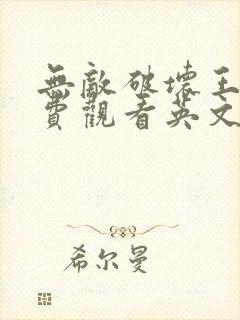 無敵破壞王
費觀看英文
希尔曼